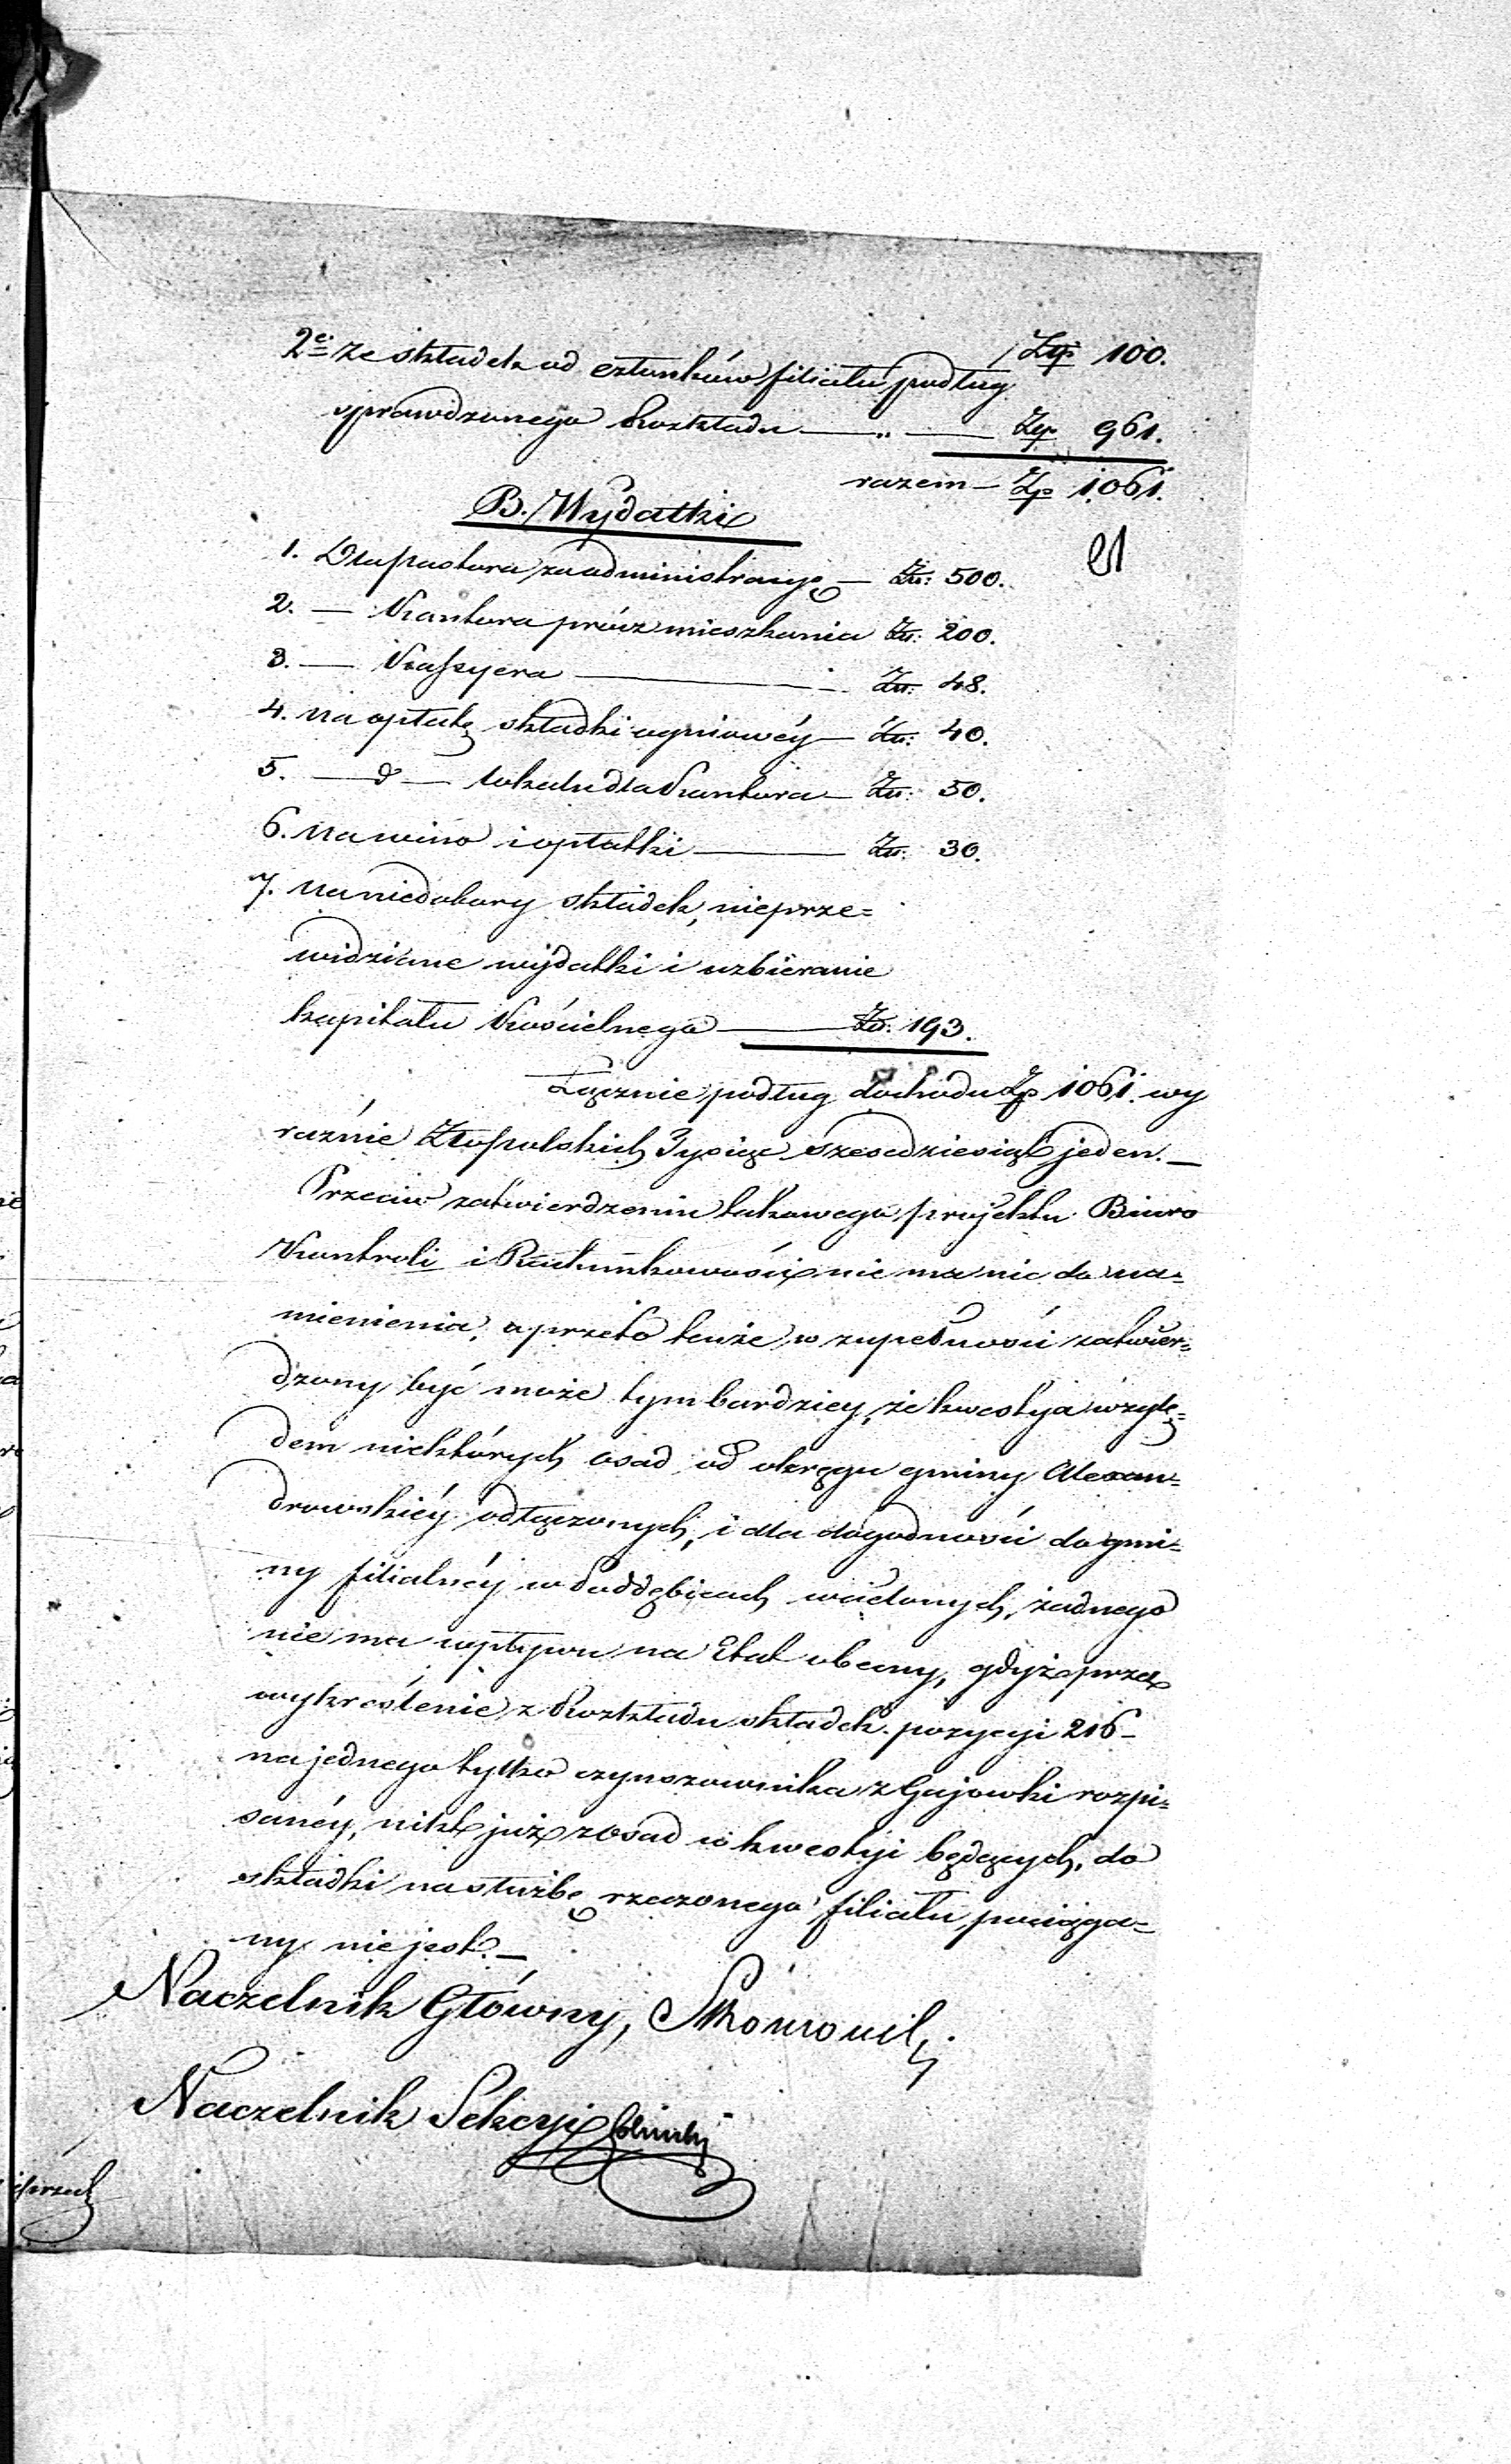 Złp 100.
2e ze składek od członków filiału podług
sprawdzonego Rozkładu — „ — Złp 961.
razem — Złp 1061.
B. Wydatki
1. Dla Pastora za administracyę — Złl: 500.
2. — Kantora prócz mieszkania Złl: 200.
3. — Kassyera — Złl: 48.
4. na opłatę składki ogniowéy — Złl: 40.
5. — d — lokalu dla Kantora — Złl: 50.
6. na wino i opłatki — Złl: 30.
7. na niedobory składek, nieprze=
widziane wydatki i uzbieranie
kapitału Kościelnego — Zł: 193.
Łącznie podług dochodu Złp 1061. wy
raźnie Złopolskich Tysiąc sześćdziesiąt jeden. —
Przeciw zatwierdzeniu takowego projektu Biuro
Kontroli i Rachunkowości nie ma nic do na=
mienienia, a przeto tenże w zupełności zatwier=
dzony być może tym bardziey, że kwestyja wzglę=
dem niektórych osad od okręgu gminy Alexan=
drowskiéy odłączonych, i dla dogodności do gmi=
ny filialnéy w Poddębicach wcielonych, żadnego
nie ma wpływu na Etat obecny, gdyż przez
wykreślenie z Rozkładu składek pozycyi 216 –
na jednego tylko czynszownika z Gajowki rozpi=
sanéy, nikt już z osad w kwestyi będących, do
składki na służbę rzeczonego filiału pociąga=
ny nie jest. —
Naczelnik Główny,
Naczelnik Sekcyi